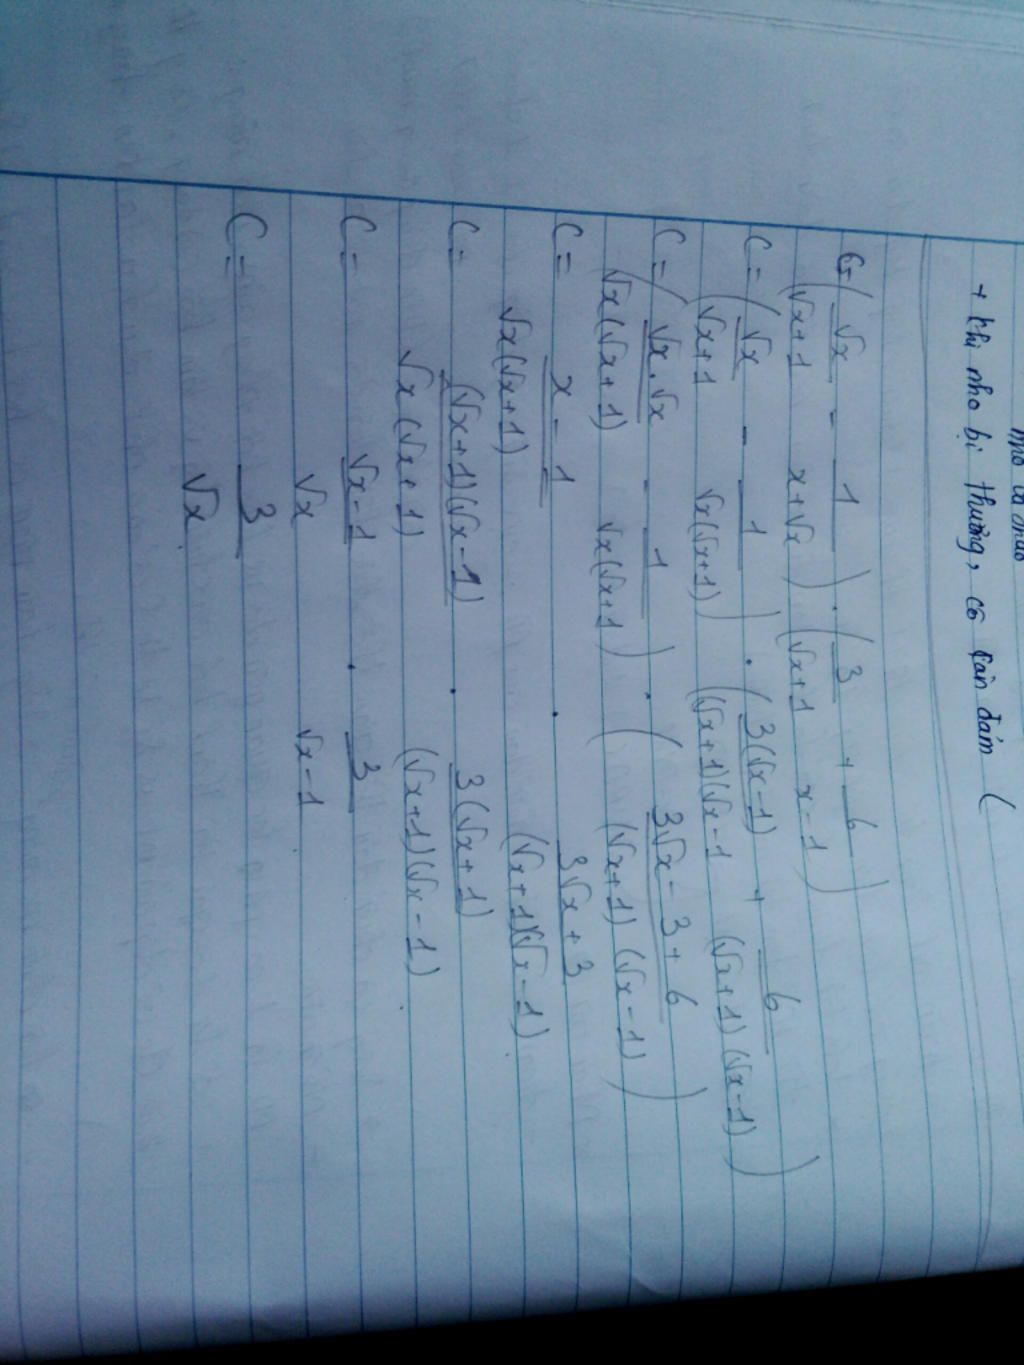 + khi nho bị thương, có
C = (√x/(√x+1) - 1/(x+√x)) . (3/(√x+1) + 6/(x-1))
C = (√x/(√x+1) - 1/(√x(√x+1))) . (3(√x-1)/((√x+1)(√x-1) + 6/((√x+1)(√x-1)))
C = (√x.√x/(√x(√x+1)) - 1/(√x(√x+1)) . ((3√x-3+6)/((√x+1)(√x-1)))
C = (x-1)/(√x(√x+1)) . (3√x+3)/((√x+1)(√x-1))
C = (√x+1)(√x-1)/(√x(√x+1)) . 3(√x+1)/((√x+1)(√x-1))
C = (√x-1)/√x . 3/(√x-1)
C = 3/√x